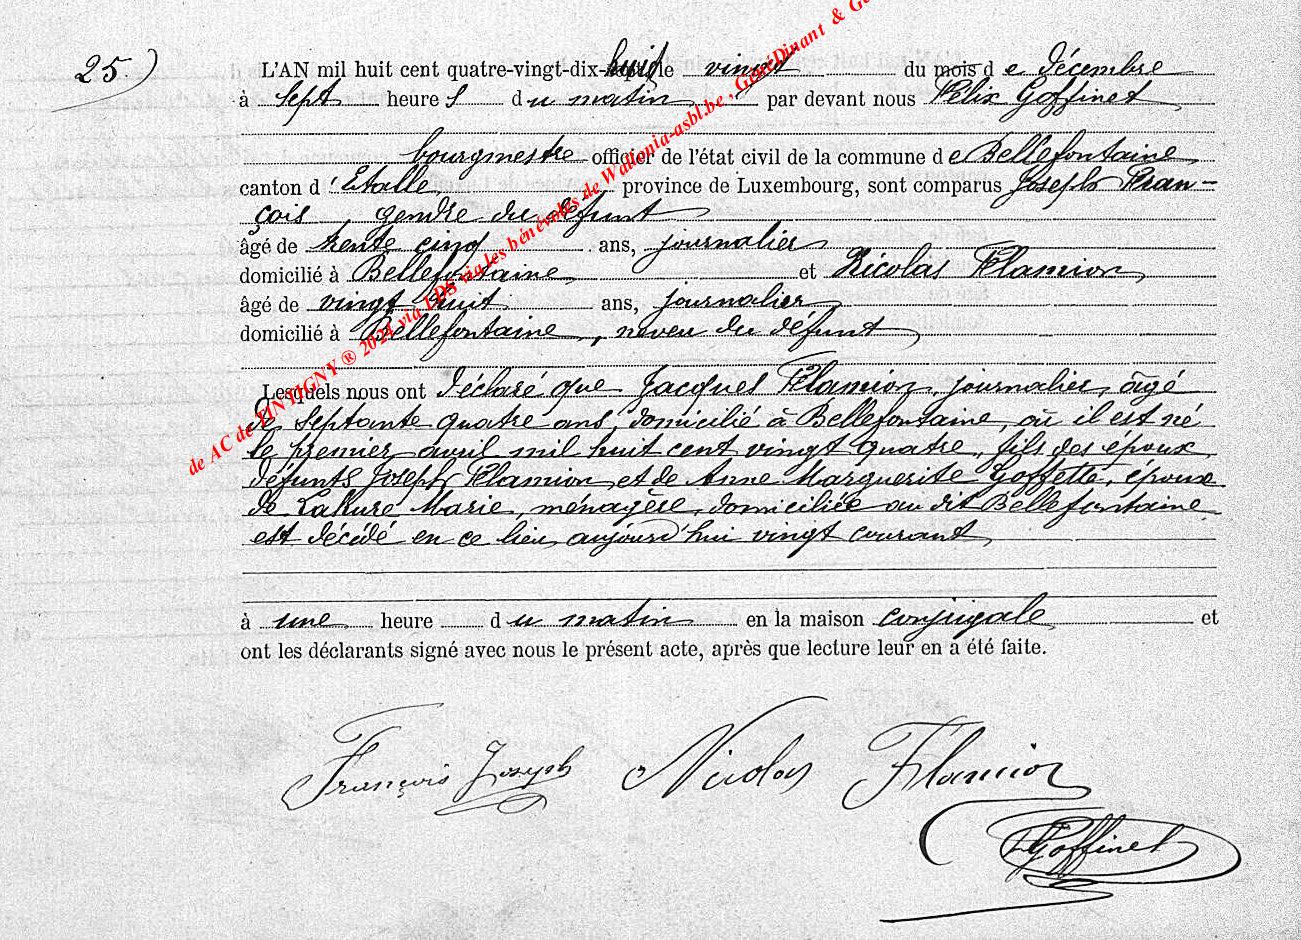 25.)
L'AN mil huit cent quatre-vingt-dix-huit le vingt du mois de décembre
à sept heures du matin, par devant nous Félix Goffinet
bourgmestre officier de l'état civil de la commune de Bellefontaine
canton d'Etalle, province de Luxembourg, sont comparus Joseph Fran-
çois, gendre du défunt
âgé de trente cinq ans, journalier
domicilié à Bellefontaine et Nicolas Flamion,
âgé de vingt huit ans, journalier,
domicilié à Bellefontaine, neveu du défunt,
Lesquels nous ont déclaré que Jacques Flamion, journalier, âgé
de septante quatre ans, domicilié à Bellefontaine, où il est né
le premier avril mil huit cent vingt quatre, fils des époux
défunts Joseph Flamion et de Anne Marguerite Goffette, époux
de Lallure Marie, ménagère, domiciliée au dit Bellefontaine
est décédé en ce lieu aujourd'hui vingt courant,
à une heure du matin en la maison conjugale et
ont les déclarants signé avec nous le présent acte, après que lecture leur en a été faite.
François Joseph Nicolas Flamion
F Goffinet
de AC de TINTIGNY ® 2024 via LDS via les bénévoles de Wallonia-asbl.be, GénéDinant & Gé